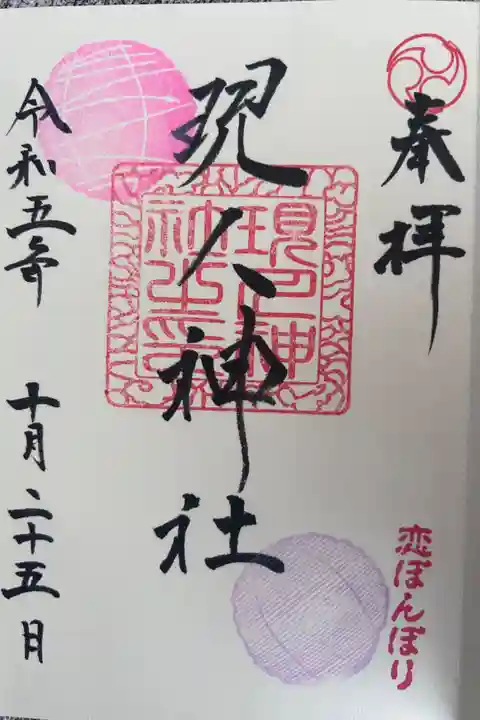 奉拝
恋ぼんぼり
現人神社
現人神社之印
令和五年 十月二十五日